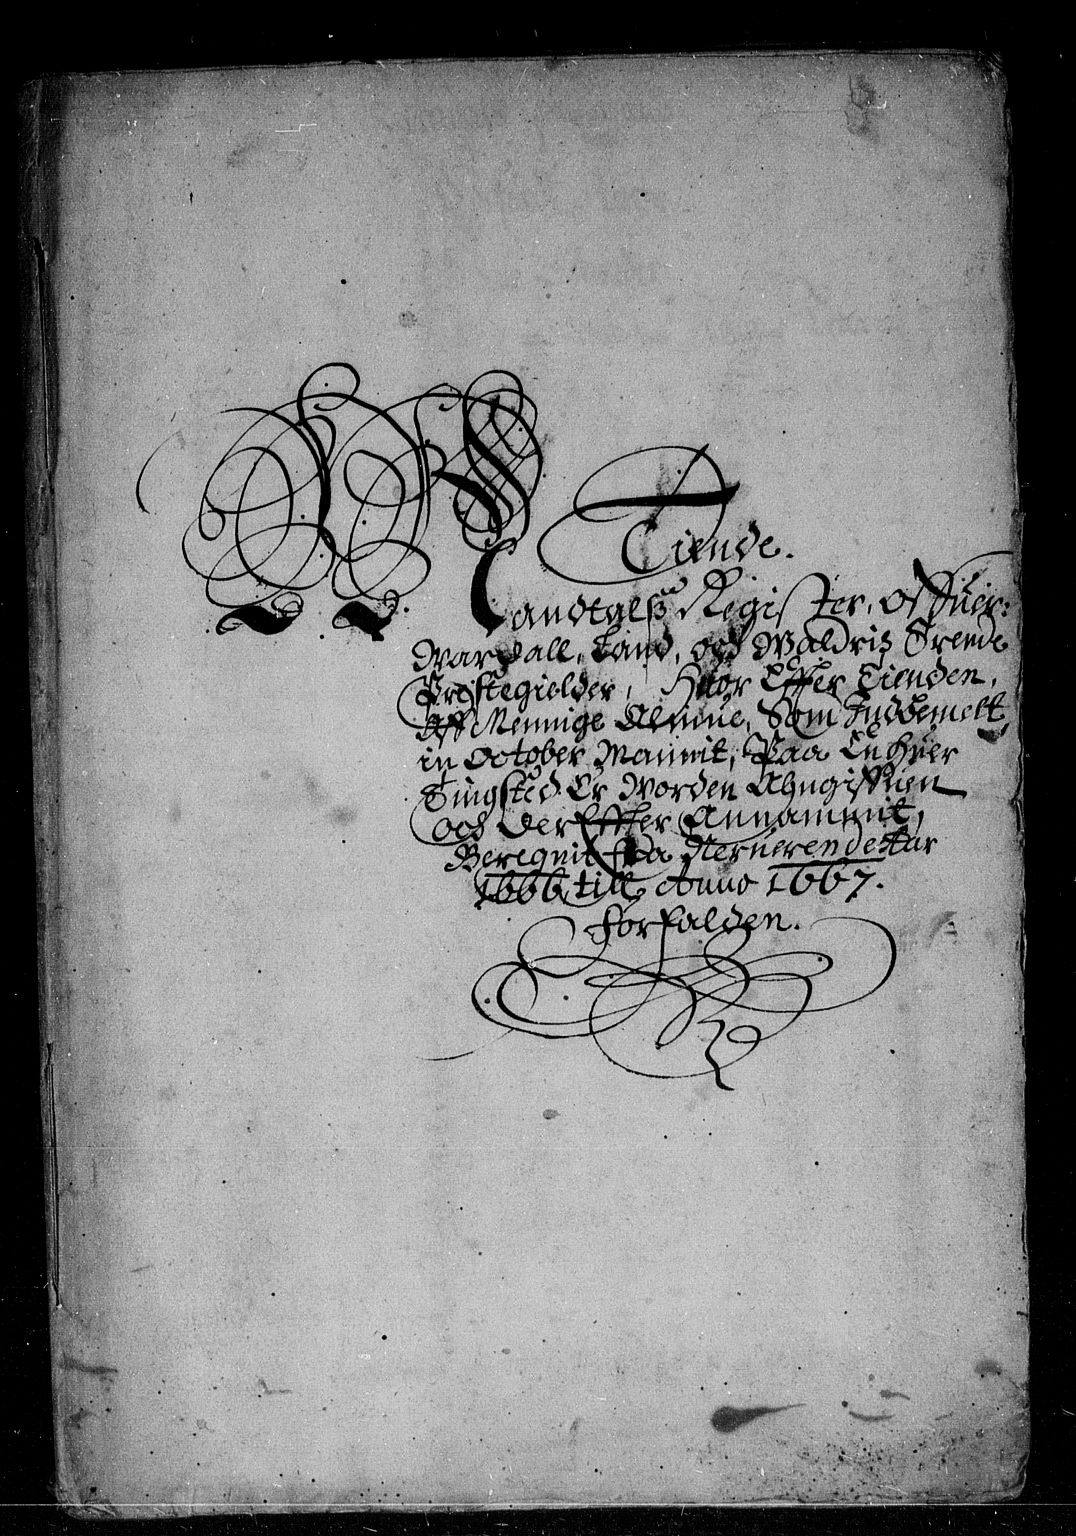 Tiende.
Mandtalß Register, Offuer:
Wardall, Land, och Waldriß Trende
Prestegielder, Huor Effter Tienden,
Aff Mennige Almue, Som Inddemelt,
in October Maanit, Paa En huer
Tingsted Er Worden Ahngiffuen
och Der Effter Annammit,
Beregnit fra Neruerende Aar
1666 till Anno 1667.
forfalden.